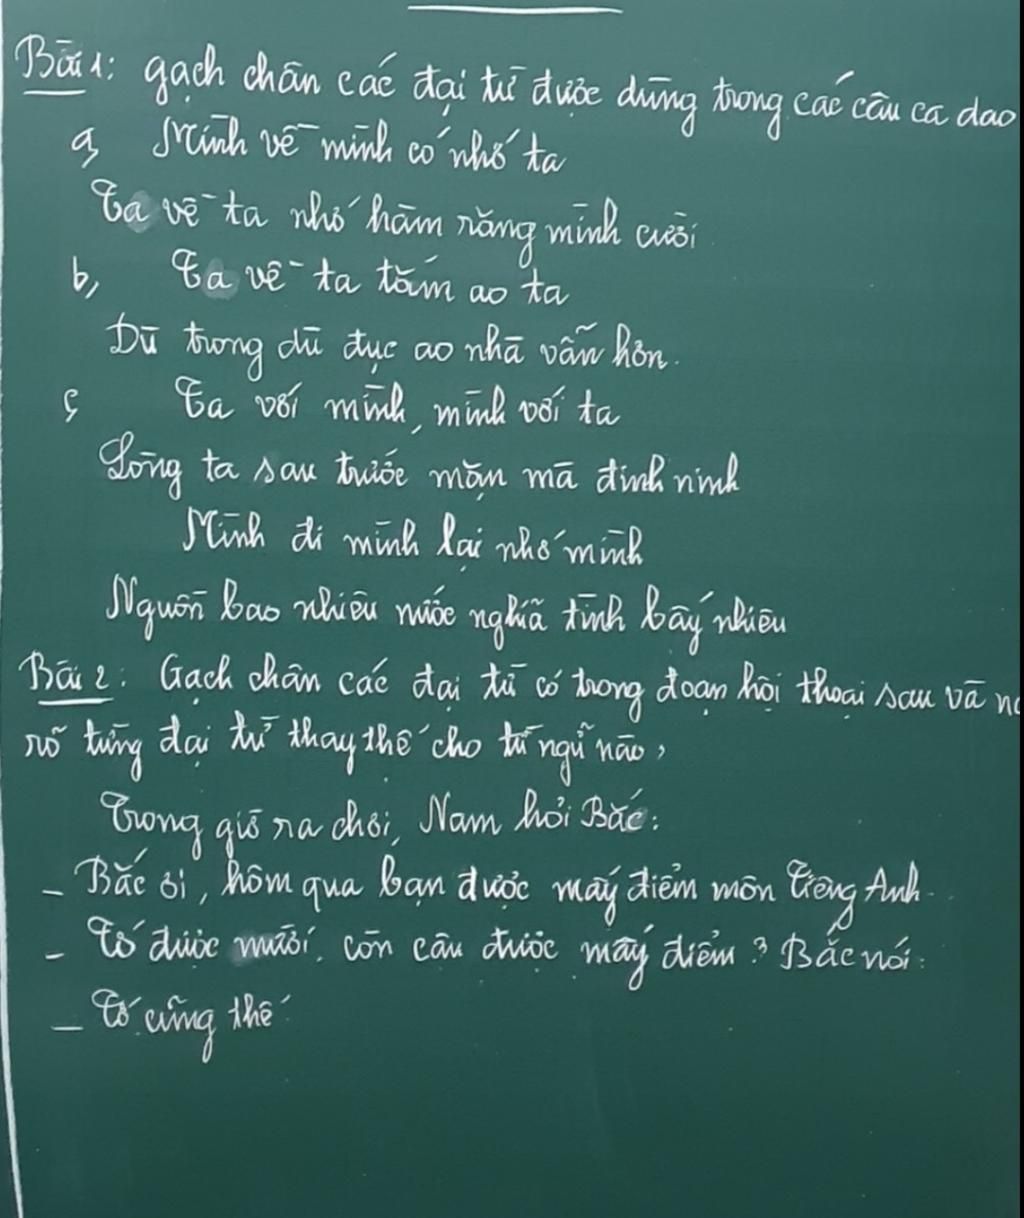 Bài 1: gạch chân các đại từ được dùng trong các câu ca dao
a, Mình về mình có nhớ ta
Ta về ta nhớ hàm răng mình cười
b, Ta về ta tắm ao ta
Dù trong dù đục ao nhà vẫn hơn.
c, Ta với mình, mình với ta
Lòng ta sau trước mặn mà đinh ninh
Mình đi mình lại nhớ mình
Nguồn bao nhiêu nước nghĩa tình bấy nhiêu
Bài 2: Gạch chân các đại từ có trong đoạn hội thoại sau và
rõ từng đại từ thay thế cho từ ngữ nào,
Trong giờ ra chơi, Nam hỏi Bắc:
- Bắc ơi, hôm qua bạn được mấy điểm môn Tiếng Anh
- Tớ được mười, còn cậu được mấy điểm ? Bắc nói:
- Tớ cũng thế